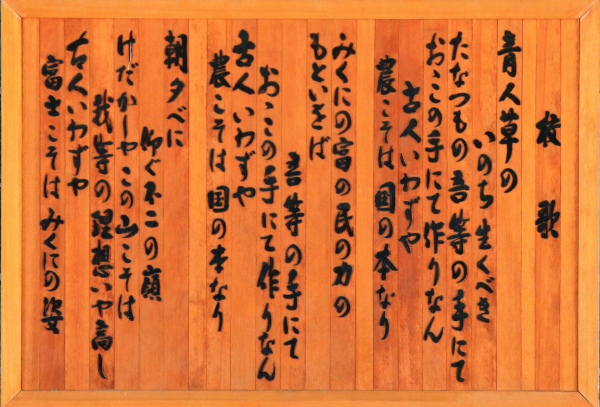 校歌
青人草の
いのち生くべき
たなつもの吾等の手にて
おこの手にて作りなん
古人いわずや
農こそは国の本なり
みくにの富の民の力の
もといきば
吾等の手にて
おこの手にて作りなん
古人いわずや
農こそは国の本なり
朝夕べに
仰ぐ不二の嶺
けだかしやこの山こそは
我等の理想いや高し
古人いわずや
富士こそはみくにの姿